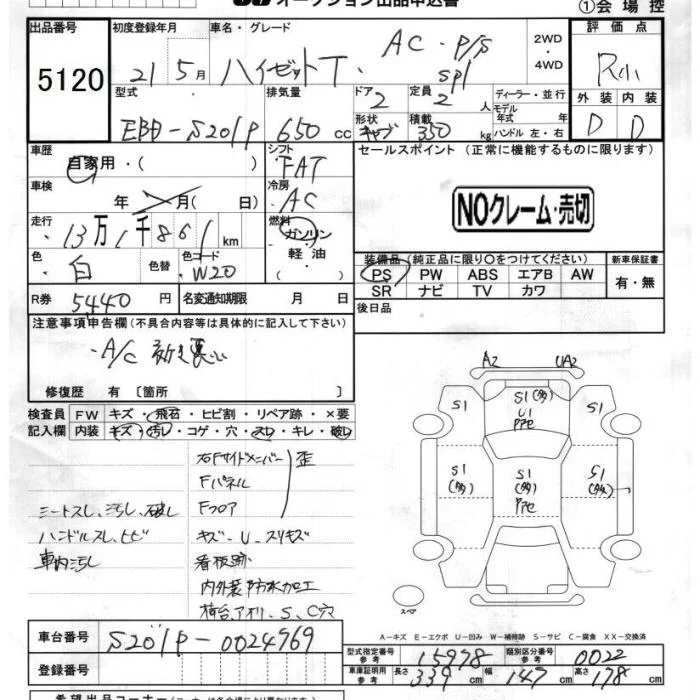 オークション出品申込書
①会場控
出品番号 初度登録年月 車名・グレード 評価点
5120 21年5月 ハイゼットT. AC・P/S spl 2WD・4WD R小
型式 排気量 ドア 定員 ディーラー・並行 外装 内装
EBD-S201P 650cc 2 2人 モデル年式 年 D D
形状 積載 ハンドル 左・右
キャブ 350kg
車歴 シフト セールスポイント (正常に機能するものに限ります)
自家用・( ) FAT
車検 冷房
年 月( 日) AC
NOクレーム・売切
走行 燃料
13万1千861km ガソリン・軽油
色 色替 色コード 装備品(純正品に限り○をつけてください) 新車保証書
白 W20 PS PW ABS エアB AW 有・無
SR ナビ TV カワ
R券 5440円 名変通知期限 月 日 後日品
注意事項申告欄(不具合内容等は具体的に記入して下さい)
・A/C 効き悪い
修復歴 有〔箇所 〕
検査員記入欄 FW キズ・飛石・ヒビ割・リペア跡・×要
内装 キズ・汚し・コゲ・穴・スレ・キレ・破レ
右Fサイドメンバー
Fパネル 歪
シートスレ、汚し、破レ Fフロア
ハンドルスレ、ヒビ キズ・U・スリキズ
車内汚し 看板跡
内外装防水加工
荷台、アオリ、S、C穴
A2 UA2
S1 S1(多) U1 アセ S1
S1(多) S1(多) アセ S1(多)
スペア
A-キズ E-エクボ U-凹み W-補修跡 S-サビ C-腐食 XX-交換済
車台番号 S201P-0024969
登録番号
型式指定番号 参考 15978 類別区分番号 参考 0022
車庫証明用 参考 長さ 339cm 幅 147cm 高さ 178cm
希望出品コーナー